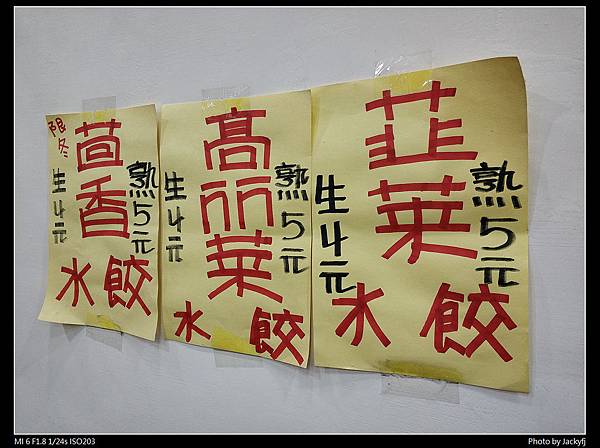 限冬
茴香
水餃
熟5元
生4元
髙丽菜
水餃
熟5元
生4元
韮菜
水餃
熟5元
生4元
MI 6 F1.8 1/24s ISO203
Photo by Jackyfj